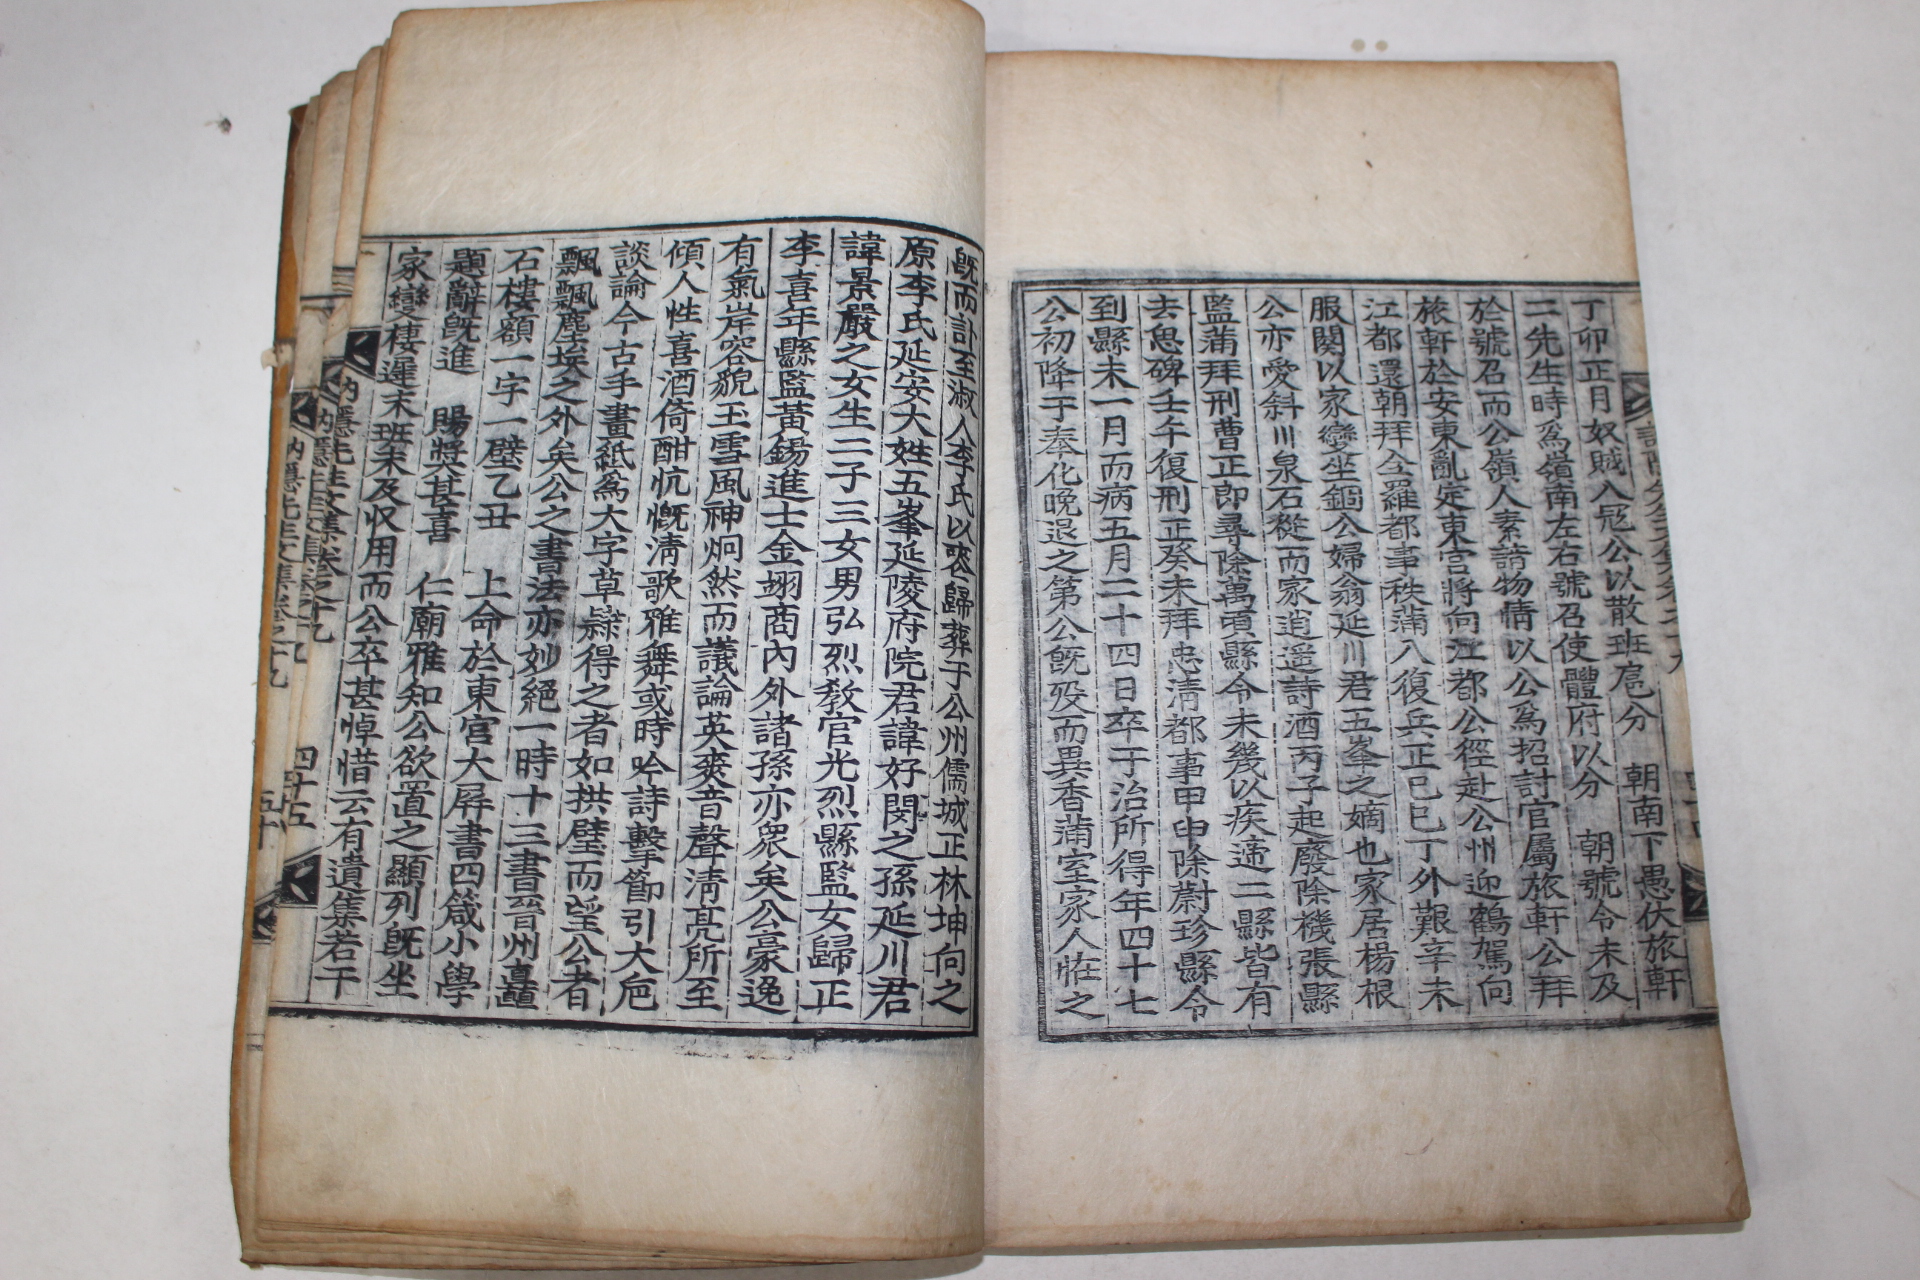 丁卯正月奴賊入冦公以散班扈分　朝南下愚伏旅軒
二先生時爲嶺南左右號召使體府以分　朝號令未及
於號召而公嶺人素諳物情以公爲招討官屬旅軒公拜
旅軒於安東亂定東宮將向江都公徑赴公州迎鶴駕向
江都還朝拜全羅都事秩滿入復兵正已巳丁外艱辛未
服闋以家變坐錮公婦翁延川君五峯之嫡也家居楊根
公亦愛斜川泉石從而家逍遥詩酒丙子起廢除機張縣
監蒲拜刑曹正郎尋除萬頃縣令未幾以疾遞二縣皆有
去思碑壬午復刑正癸未拜忠淸都事甲申除蔚珍縣令
到縣未一月而病五月二十四日卒于治所得年四十七
公初降于奉化晩退之第公旣歿而異香蒲室家人㽵之
旣而訃至淑人李氏以喪歸葬于公州儒城正林坤向之
原李氏延安大姓五峯延陵府院君諱好閔之孫延川君
諱景嚴之女生二子三女男弘烈敎官光烈縣監女歸正
李喜年縣監黃鍚進士金翊商內外諸孫亦衆矣公豪逸
有氣岸容貌玉雪風神炯然而議論英爽音聲淸亮所至
傾人性喜酒倚酣忼慨淸歌雅舞或時吟詩擊節引大巵
談論今古手畫紙爲大字草隷得之者如拱璧而望公者
飄飄塵埃之外矣公之書法亦妙絕一時十三書晉州矗
石樓額一字一壁乙丑　上命於東官大屛書四箴小學
題辭旣進　賜獎甚喜　仁廟雅知公欲置之顯列旣坐
家變棲遲末班未及收用而公卒甚悼惜云有遺集若干
訥隱先生文集卷之十九
四十五
訥隱先生文集卷之十九